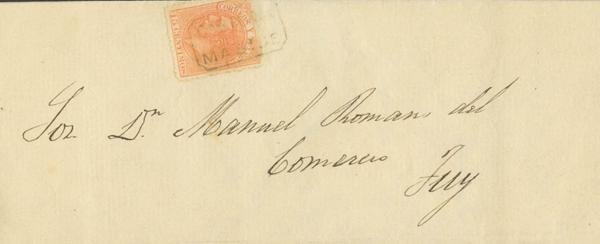 CORREOS Y T
15 CENTIMOS
Sor. Dn. Manuel Roman, del
Comercio
Tuy